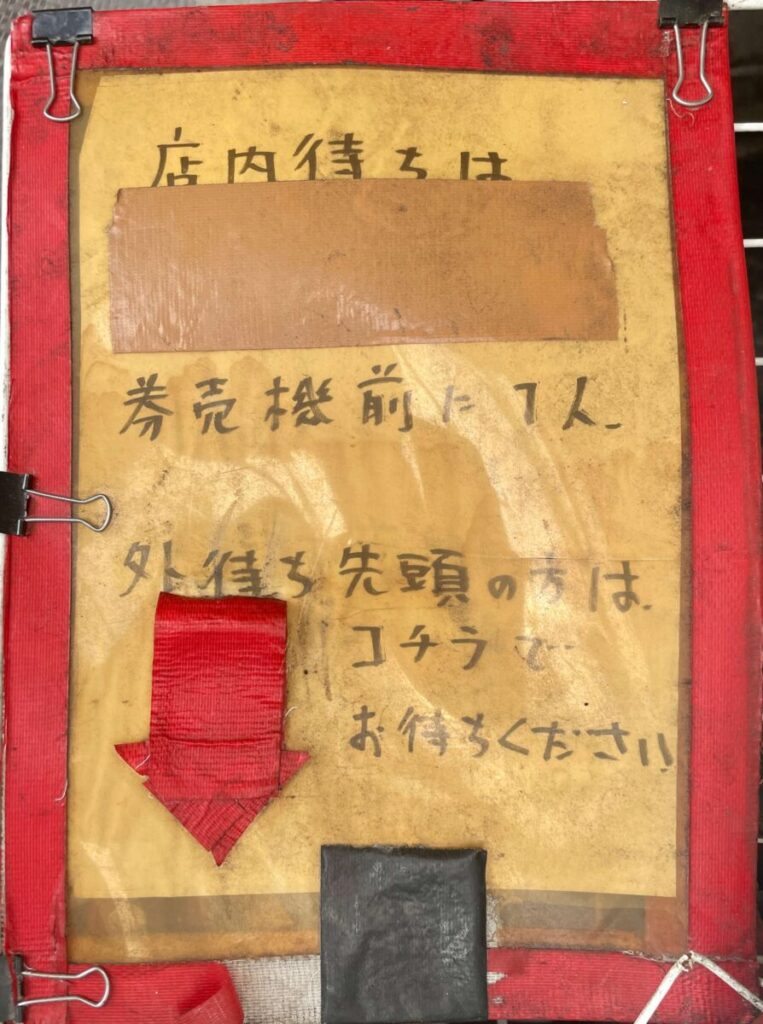 店内待ちは
券売機前に1人
外待ち先頭の方は
コチラで
お待ちください